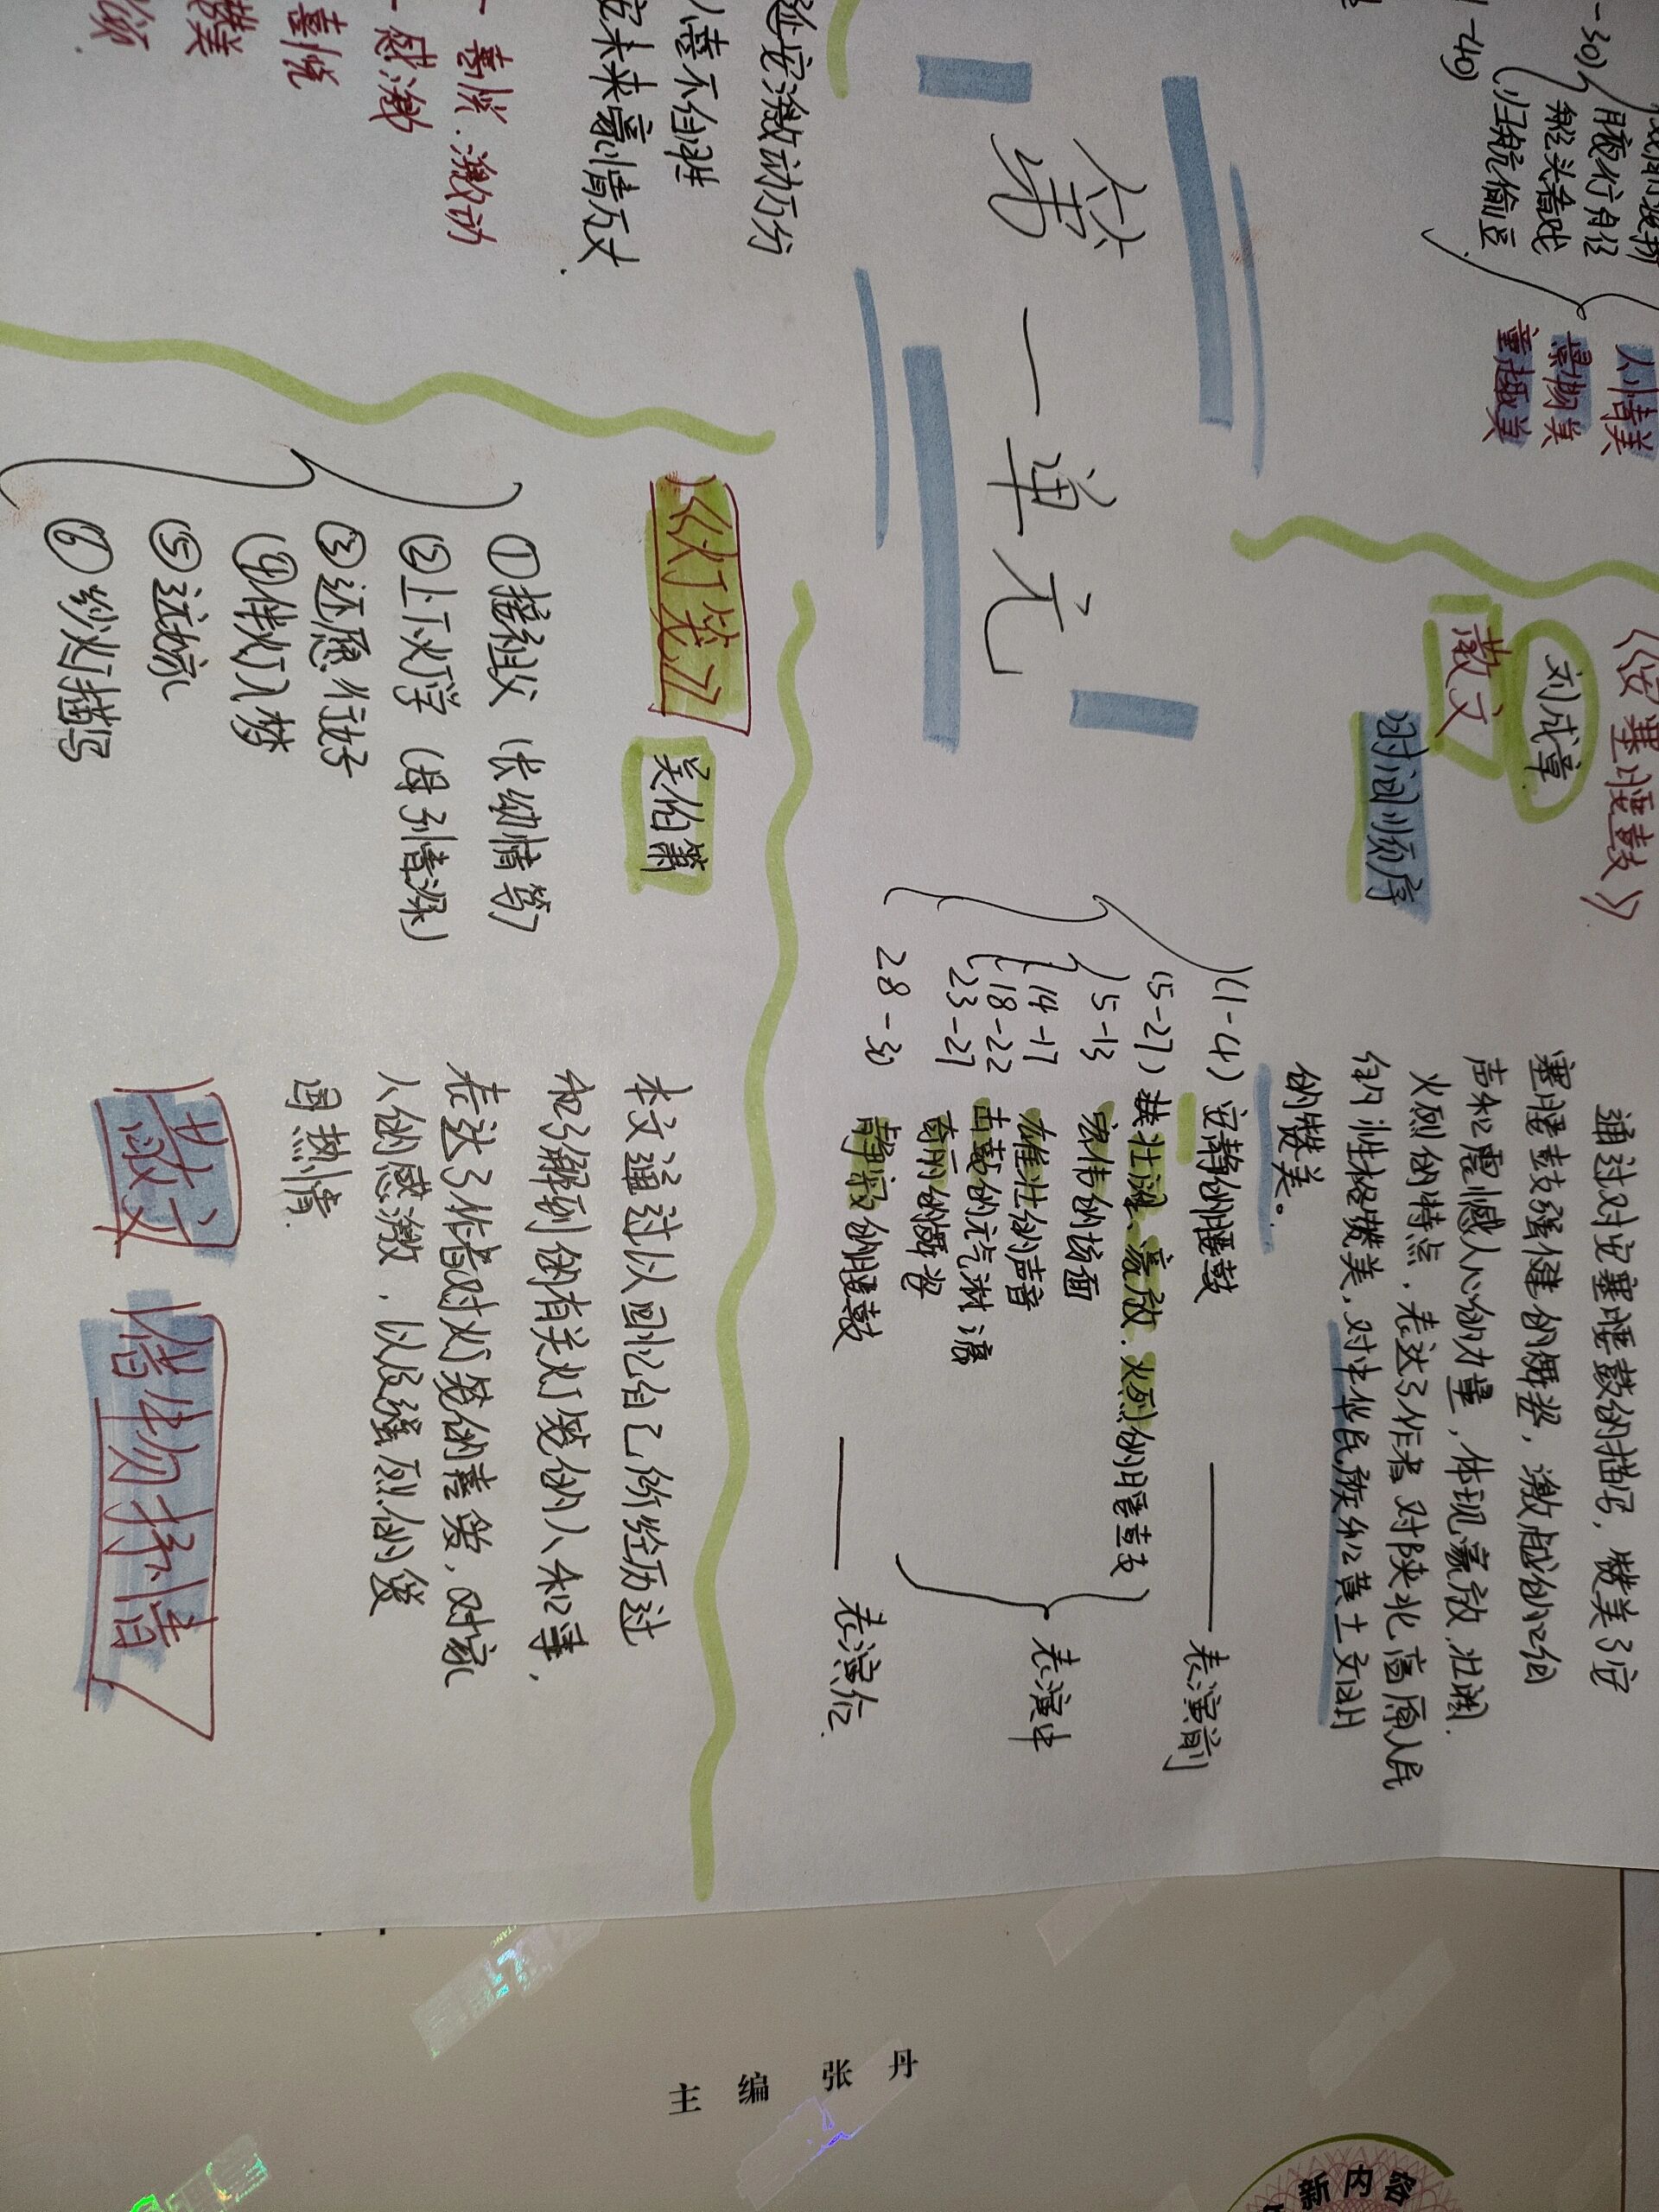 -30) 月夜行舟
船头看戏
1-40) 归航偷豆
人情美
景物美
童趣美
《安塞腰鼓》
刘成章
散文
时间顺序
通过对安塞腰鼓的描写，赞美了安
塞腰鼓强健的舞姿，激越的
声和震憾人心的力量，体现豪放.壮阔.
火烈的特点，表达了作者对陕北高原人民
的性格赞美，对中华民族和黄土文明
的赞美。
(1-4) 安静的腰鼓 —— 表演前
(5-27) 壮阔、豪放.火烈的腰鼓
5-13 宏伟的场面
14-17 雄壮的声音
18-22 击鼓的元气淋漓
23-27 奇丽的舞姿
表演中
28-30 静寂的腰鼓 —— 表演后
第一单元
延安激动万分
喜不自胜
安未来豪情万丈.
喜悦.激动
感激
喜悦
赞美
《灯笼》
吴伯箫
①接祖父 (长幼情笃)
②上下灯学 (母子情深)
③还愿.行好
④伴灯入梦
⑤进嫁
⑥纱灯描写
本文通过以回忆自己所经历过
和了解到的有关灯笼的人和事，
表达了作者对灯笼的喜爱，对家
人的感激，以及强烈的爱
国热情.
散文
借物抒情
主编 张丹
新内容